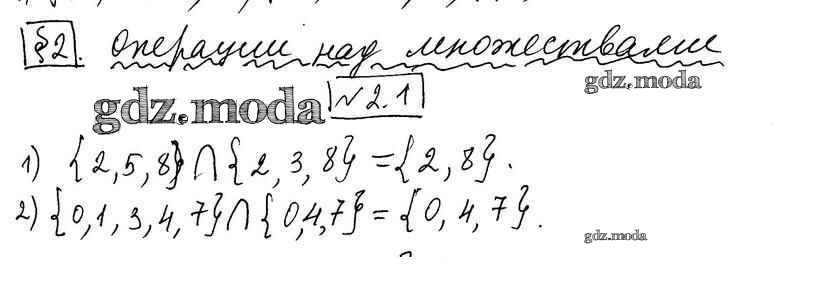 §2. Операции над множествами
gdz.moda
gdz.moda
№2.1
1) {2,5,8}∩{2,3,8}={2,8}.
2) {0,1,3,4,7}∩{0,4,7}={0,4,7}.
gdz.moda